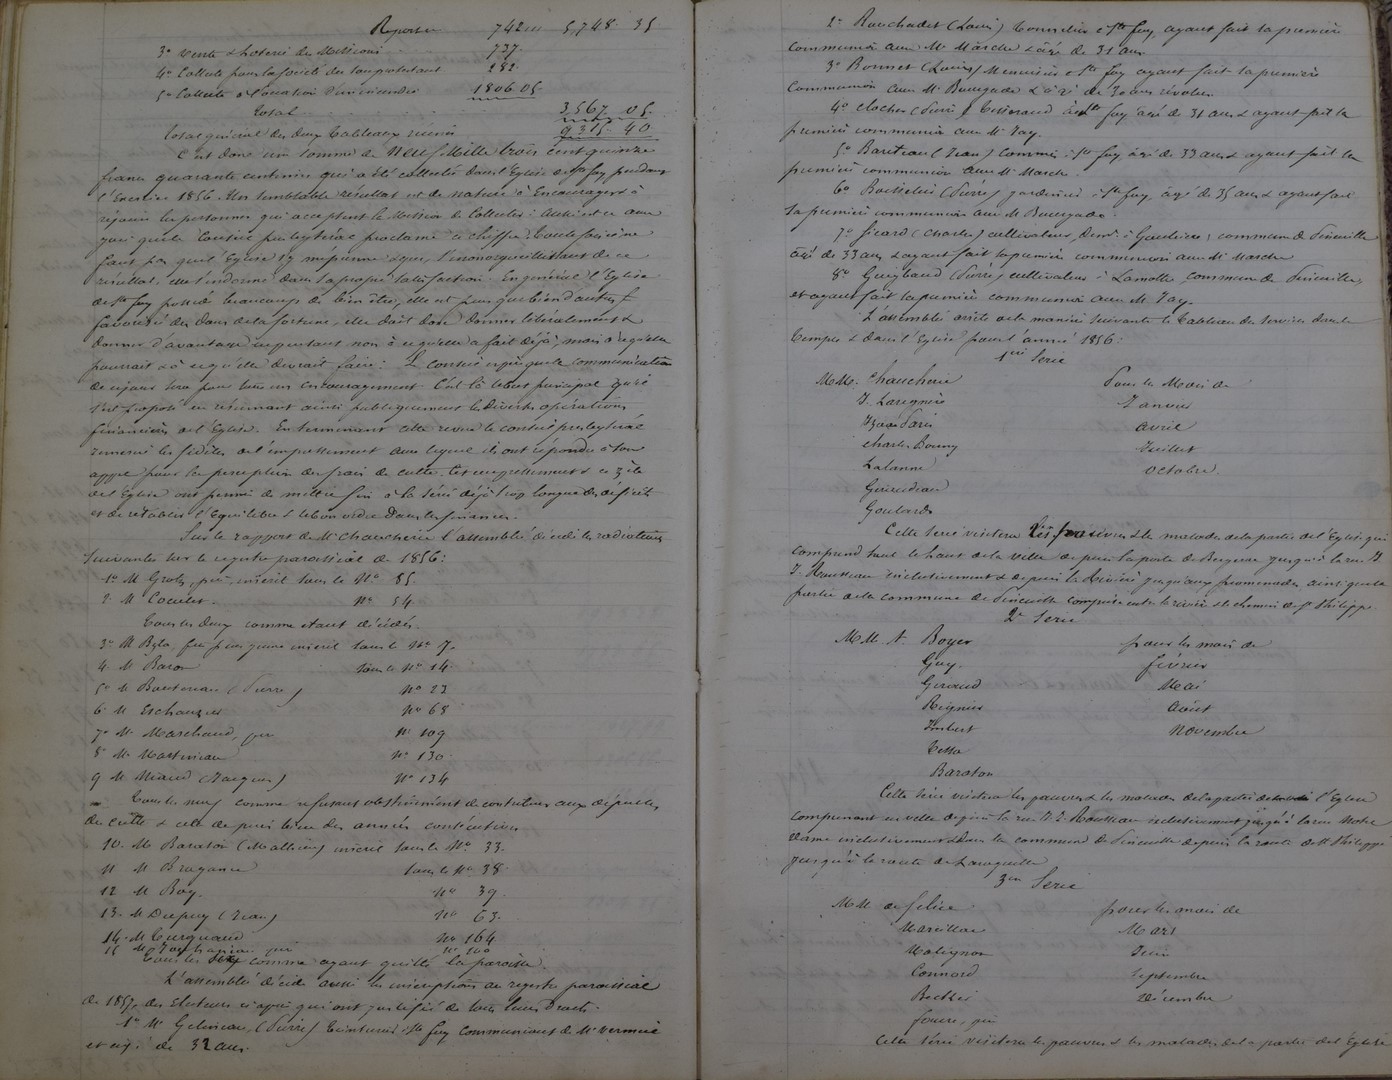 Report 742 5,748. 35
3º Vente & loterie des Missions 737.
4º Collecte pour la Société du sou protestant 282.
5º Collecte à l'occasion d'un incendie 1806 05
Total 3,567. 05.
Total général des deux tableaux réunis 9315. 40
C'est donc une somme de Neuf Mille trois cent quinze
francs quarante centimes qui a été collectée dans l'Eglise de Ste foy pendant
l'Exercice 1856. Un semblable résultat est de nature à Encourager & à
réjouir les personnes qui acceptent la Mission de Collecter: aussi est ce avec
que le Conseil presbytéral proclame ce chiffre. Toutefois il ne
faut pas que l'Eglise s'y méprenne & que, s'enorgueillissant de ce
résultat, elle s'endorme dans sa propre satisfaction. En général l'Eglise
de Ste foy possède beaucoup de bien être, elle est plus que bien d'autres
favorisée des dons de la fortune, elle doit donc donner libéralement &
donner d'avantage en portant non à ce qu'elle a fait déjà, mais à ce qu'elle
pourrait & à ce qu'elle devrait faire: Le conseil espère que la communication
de ce jour sera pour tous un encouragement. C'est là le but principal qu'il
s'est proposé en résumant ainsi publiquement les diverses opérations
financières de l'Eglise. En terminant cette revue le conseil presbytéral
remercie les fidèles de l'empressement avec lequel ils ont répondu à son
appel pour la perception des frais de culte. Cet empressement & ce zèle
de l'Eglise ont permis de mettre fin à la série déjà trop longue des déficits
et de rétablir l'Equilibre & le bon ordre dans les finances.
Sur le rapport de Mr Chaucherie l'assemblée décide les radiations
suivantes sur le registre paroissial de 1856:
1º M Grotz, père inscrit sous le Nº 85.
2. M Coculet. Nº 54.
Tous les deux comme étant décédés.
3º M Byla, fils plus jeune inscrit sous le Nº 7.
4. M Baron sous le Nº 14.
5º M Bousseneau (Pierre) Nº 23
6. M Eschauzier Nº 68
7º M. Marchaud, père Nº 109
8º M. Martineau Nº 130.
9 M Miaud (Jacques) Nº 134
Tous les neuf comme refusant obstinément de contribuer aux dépenses
du culte & cela depuis bien des années consécutives
10. M Baraton (Mathieu) inscrit sous le Nº. 33.
11 M Bragance sous le Nº 38.
12 M Boy. Nº 39.
13. M Dupuy (Jean) Nº 63.
14. M Turquaud Nº 164
15 M père Nº
Tous les comme ayant quitté la paroisse.
L'assemblée décide aussi les inscriptions au registre paroissial
de 1857, des Electeurs ci après qui ont justifié de tous leurs Droits.
1º Mr Gelineau, (Pierre) Teinturier à Ste foy Communiant de Mr Vermeil
et âgé de 32 ans.
2º Rouchadet (Louis) Tonnelier à Ste foy, ayant fait sa première
communion avec Mr Marche & âgé de 31 ans
3º Bonnet (Louis) Menuisier à Ste foy ayant fait sa première
Communion avec Mr Bourgade & âgé de 30 ans révolus.
4º Clocher (Pierre) Tisserand à Ste foy âgé de 31 ans & ayant fait sa
première communion avec Mr Jay.
5º Bariteau (Jean) Commis à Ste foy âgé de 33 ans & ayant fait sa
première communion avec Mr Marche.
6º Boisselier (Pierre) jardinier à Ste foy, âgé de 35 ans & ayant fait
sa première communion avec Mr Bourgade.
7º Sicard (Charles) cultivateur, demt à Gauthiers, commune de Pineuilh
âgé de 33 ans & ayant fait sa première communion avec Mr Marche
8º Guignaud (Pierre) cultivateur à Lamothe, Commune de Pineuilh,
et ayant fait sa première communion avec M. Jay.
L'assemblée arrête de la manière suivante le tableau du service dans le
Temple & dans l'Eglise pour l'année 1856:
1ère Serie
MM. Chaucherie Pour les Mois de
J. Laregnère Janvier
Avril
Charles Bonny Juillet
Lalanne Octobre.
Guiraudeau
Goulards
Cette serie visitera les pauvres & les malades de la partie de l'Eglise qui
comprend tout le haut de la ville depuis la porte de Bergerac jusqu'à la rue J.
J. Rousseau inclusivement & depuis la Rivière jusqu'aux promenades ainsi que la
partie de la commune de Pineuilh comprise entre la rivière & le chemin de St Philippe
2e Serie
MM A Boyer pour les mois de
Guy. février
Giraud Mai
Reignier Août
Imbert Novembre
Testa
Baraton
Cette série visitera les pauvres & les malades de la partie de l'Eglise
comprenant en ville depuis la rue J. J. Rousseau inclusivement jusqu'à la rue Notre
Dame inclusivement & dans la commune de Pineuilh depuis la route de St Philippe
jusqu'à la route de
3em Serie
MM de félice pour les mois de
Mareilhac Mars
Matignon Juin
Connord Septembre
Décembre
foure, père
Cette série visitera les pauvres & les malades de la partie de l'Eglise